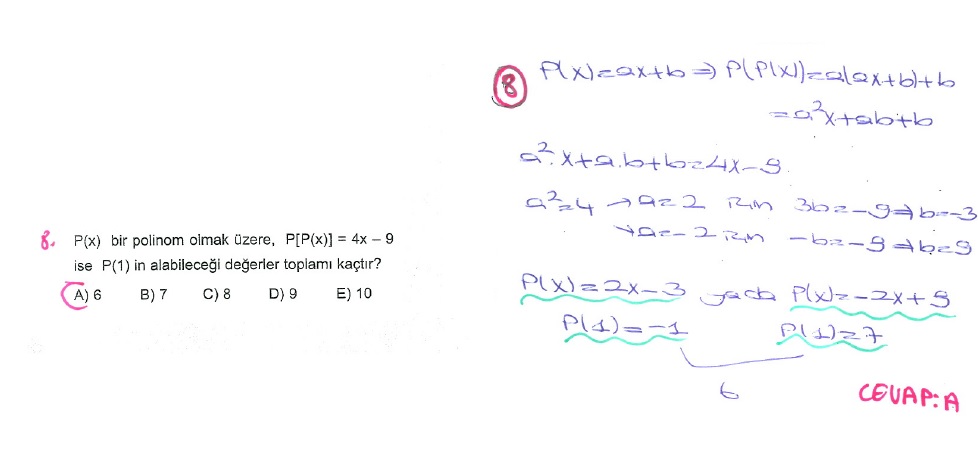 8. P(x) bir polinom olmak üzere, P[P(x)] = 4x – 9
ise P(1) in alabileceği değerler toplamı kaçtır?
A) 6 B) 7 C) 8 D) 9 E) 10
8 P(x)=ax+b ⇒ P(P(x))=a(ax+b)+b
=a²x+ab+b
a².x+a.b+b=4x-9.
a²=4 → a=2 için 3b=-9 ⇒ b=-3
→ a=-2 için -b=-9 ⇒ b=9
P(x)=2x-3 yada P(x)=-2x+9
P(1)=-1 P(1)=7
6
CEVAP:A